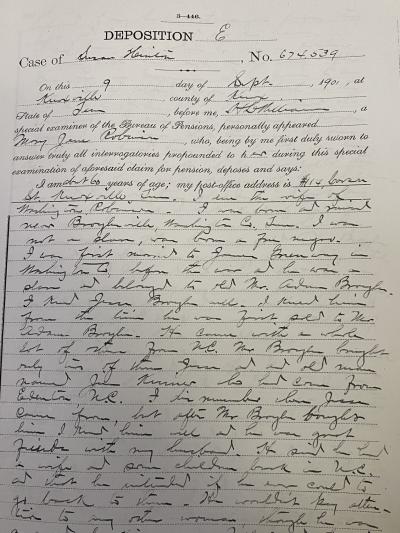 3-446.
DEPOSITION E
Case of Susan Hinton, No. 674,539
On this 9 day of Sept., 1901, at
Knoxville, county of
State of Tenn, before me, a
special examiner of the Bureau of Pensions, personally appeared
Mary Jane, who, being by me first duly sworn to
answer truly all interrogatories propounded to her during this special
examination of aforesaid claim for pension, deposes and says:
I am about 60 years of age; my post-office address is
St. Knoxville Tenn. I am the wife of
Washington. I was born and
near, Co, Tenn. I was
not a slave, was born a free negro.
I was first married to James in
Washington Co, before the war and he was a
slave and belonged to old Mr. Adam
I knew Jesse well. I knew him
from the time he was first sold to Mr.
Adam. He came with a whole
lot of others from N.C. Mr. bought
only two of them Jesse and an old man
named Jim he had come from
Edenton N.C. I remember when Jesse
came from, but after Mr. bought
him I knew him well and he was good
friends with my husband. He said he had
a wife and some children back in N.C.
and that he intended if he ever could to
go back to them. He wouldn't pay atten-
tion to any other woman, though he was